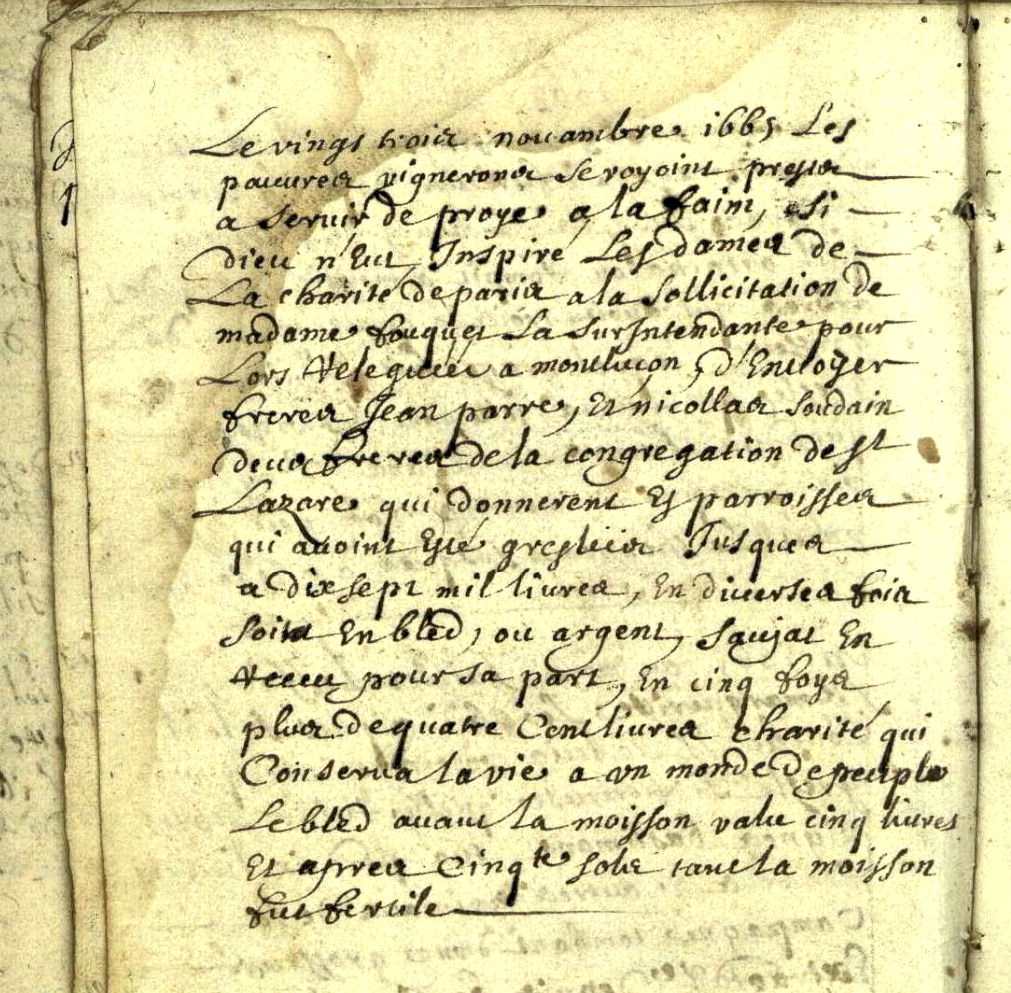 Le vingt trois nouambre 1665 Les
pauures vignerons se voyoint prests
a seruir de proye a la faim, si
dieu n'Eut Inspiré Les dames de
La charité de paris a la sollicitation de
madame fouquet La surIntendante pour
Lors releguée a montluçon, d'Enuoyer
freres Jean parre, Et nicollas soudain
deux freres de la congregation de st
Lazare qui donnerent Es parroisses
qui auoint Esté greslées Jusques
a dix sept mil liures, En diuerses fois
soit En bled, ou argent, saujat En
receu pour sa part, En cinq foys
plus de quatre Cent liures charité qui
Conserua la vie a vn monde de peuple
Le bled auant la moisson valu cinq liures
Et apres Cinq.te sols tant la moisson
fut fertile